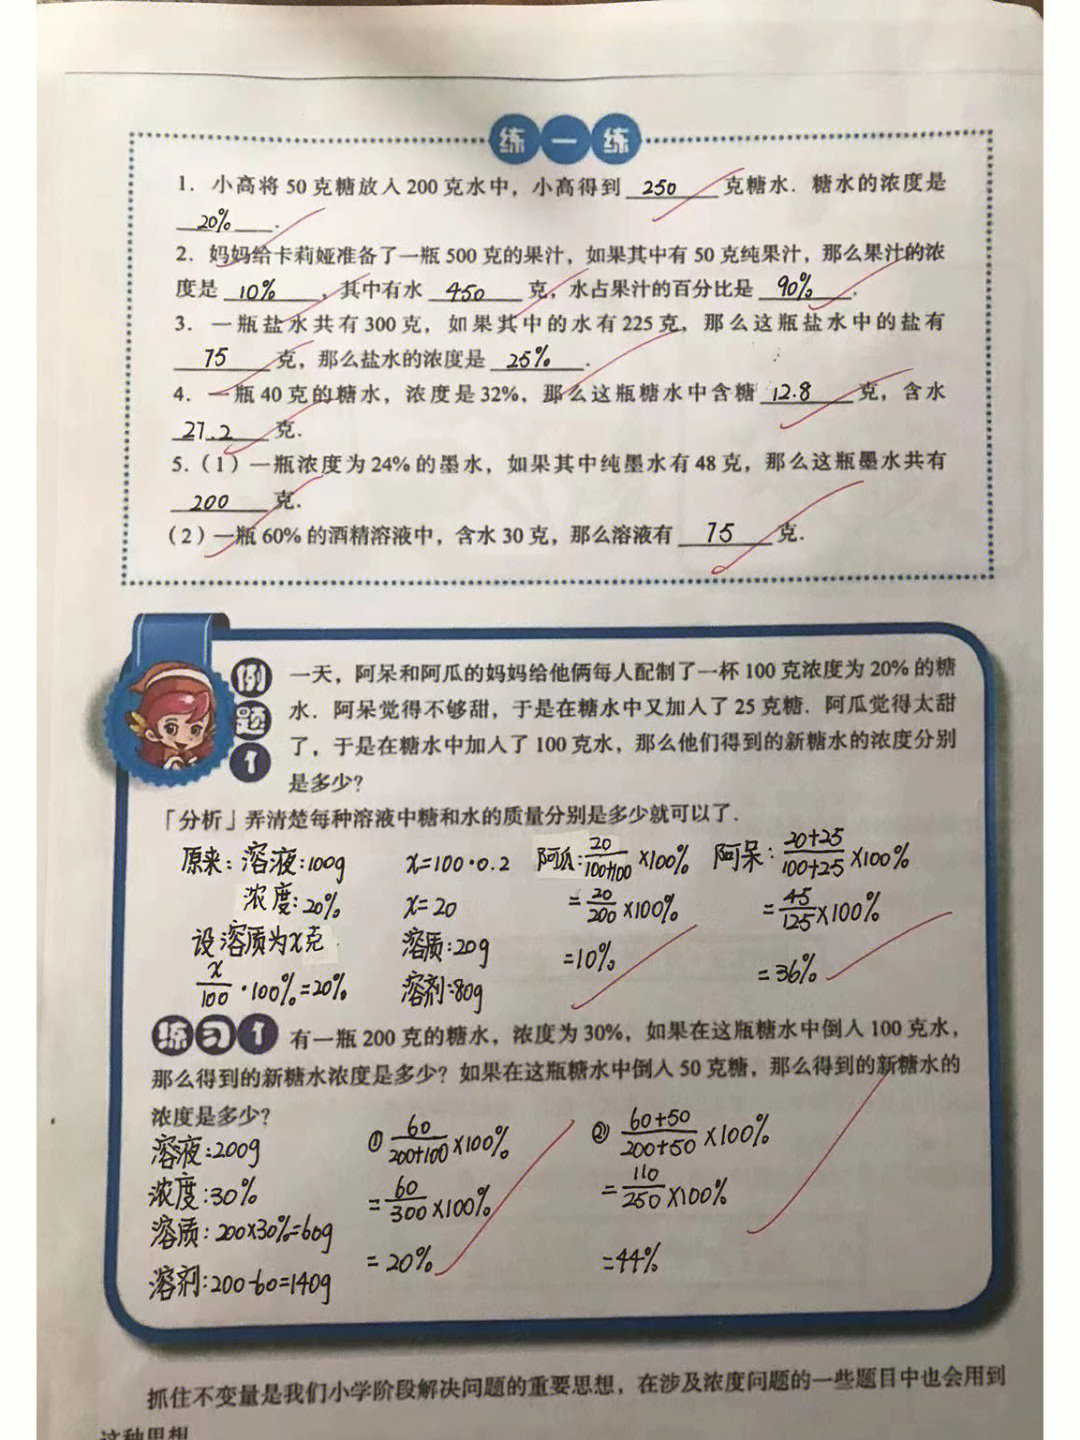 练一练
1. 小高将 50 克糖放入 200 克水中，小高得到 250 克糖水. 糖水的浓度是
20% .
2. 妈妈给卡莉娅准备了一瓶 500 克的果汁，如果其中有 50 克纯果汁，那么果汁的浓
度是 10% ，其中有水 450 克，水占果汁的百分比是 90% .
3. 一瓶盐水共有 300 克，如果其中的水有 225 克，那么这瓶盐水中的盐有
75 克，那么盐水的浓度是 25% .
4. 一瓶 40 克的糖水，浓度是 32%，那么这瓶糖水中含糖 12.8 克，含水
27.2 克.
5.（1）一瓶浓度为 24% 的墨水，如果其中纯墨水有 48 克，那么这瓶墨水共有
200 克.
（2）一瓶 60% 的酒精溶液中，含水 30 克，那么溶液有 75 克.
例题1
一天，阿呆和阿瓜的妈妈给他俩每人配制了一杯 100 克浓度为 20% 的糖
水. 阿呆觉得不够甜，于是在糖水中又加入了 25 克糖. 阿瓜觉得太甜
了，于是在糖水中加入了 100 克水，那么他们得到的新糖水的浓度分别
是多少？
「分析」弄清楚每种溶液中糖和水的质量分别是多少就可以了.
原来：溶液：100g x=100·0.2 阿瓜：20/100+100 ×100% 阿呆：20+25/100+25 ×100%
浓度：20% x=20 =20/200 ×100% =45/125 ×100%
设溶质为x克 溶质：20g =10% =36%
x/100 ·100%=20% 溶剂：80g
练习1 有一瓶 200 克的糖水，浓度为 30%，如果在这瓶糖水中倒入 100 克水，
那么得到的新糖水浓度是多少？如果在这瓶糖水中倒入 50 克糖，那么得到的新糖水的
浓度是多少？
溶液：200g ① 60/200+100 ×100% ② 60+50/200+50 ×100%
浓度：30% =60/300 ×100% =110/250 ×100%
溶质：200×30%=60g =20% =44%
溶剂：200-60=140g
抓住不变量是我们小学阶段解决问题的重要思想，在涉及浓度问题的一些题目中也会用到
这种思想